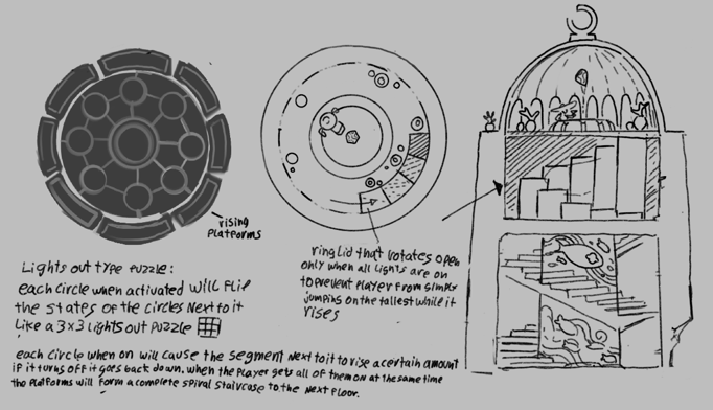 rising
Platforms
Lights out type Puzzle:
each circle when activated will flip
the states of the circles Next to it
Like a 3x3 lights out puzzle
ring lid that rotates open
only when all lights are on
to prevent player from simply
jumping on the tallest while it
rises
each circle when on will cause the segment next to it to rise a certain amount
if it turns off it goes back down. when the player gets all of them on at the same time
the platforms will form a complete spiral staircase to the next floor.